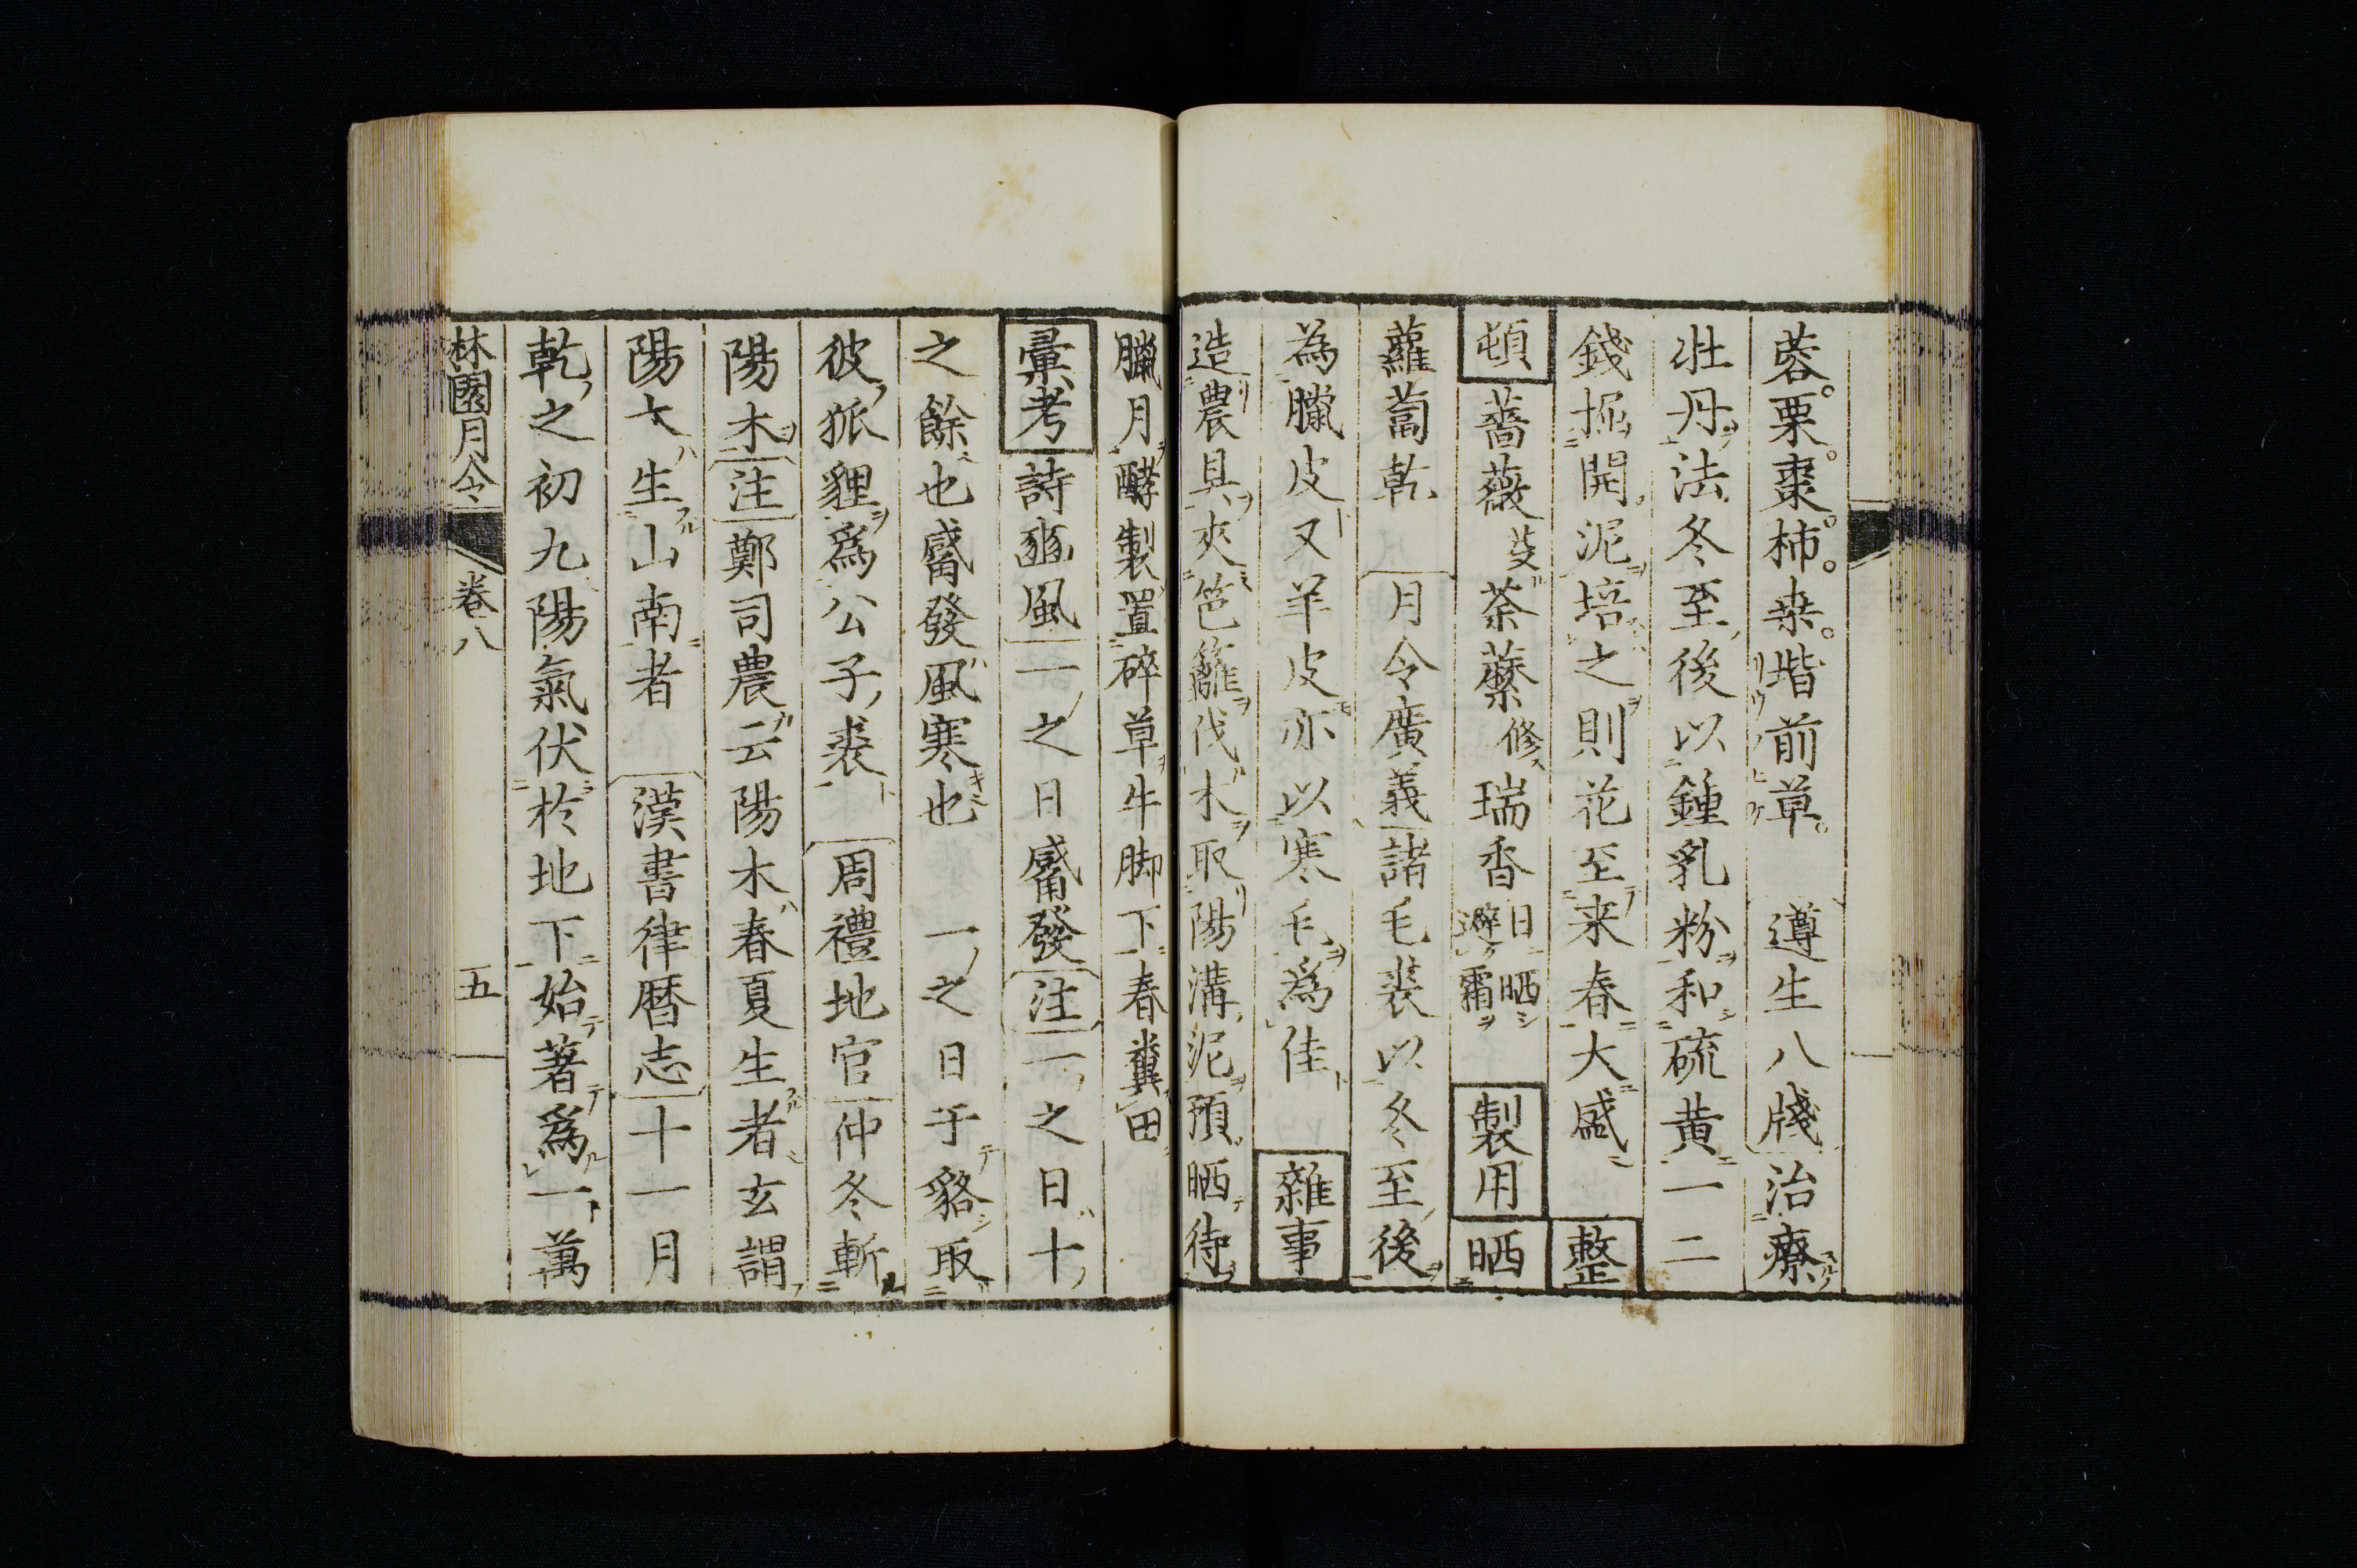 蓉。栗。棗。柿。桒。堦前草。 遵生八牋 治療
壯丹法冬至後以鍾乳粉和硫黄一二
錢掘開泥培之則花至来春大盛 整
頓 薔薇 芟 荼蘼 修 瑞香 日晒避霜 製用 晒
蘿蔔乾 月令廣義 諸毛裘以冬至後
為臘皮又羊皮亦以寒毛爲佳 雜事
造農具夾笆籬伐木取陽溝泥預晒待
臘月酵製置碎草牛脚下春糞田
彙考 詩豳風 一之日觱發 注 一之日十
之餘也觱發風寒也 一之日于貉取
彼狐貍爲公子裘 周禮地官 仲冬斬
陽木 注 鄭司農云陽木春夏生者玄謂
陽木生山南者 漢書律暦志 十一月
乾之初九陽氣伏於地下始著爲一萬
林園月令 卷八 五